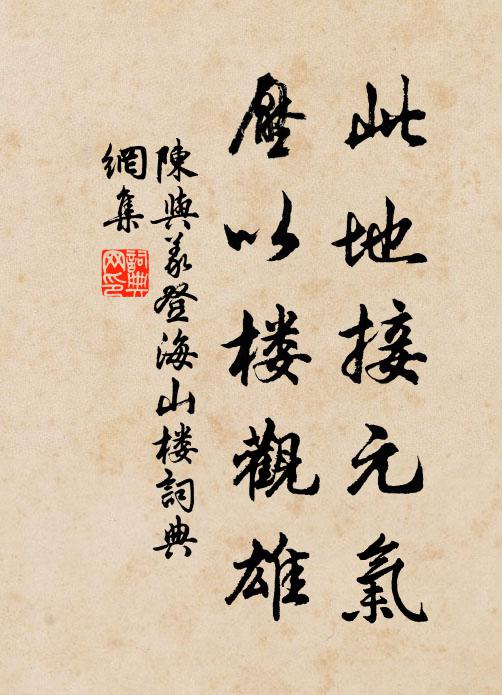 此地接元氣
壓以楼觀雄
陳與義登海山楼詞典
網集
詞典
网印